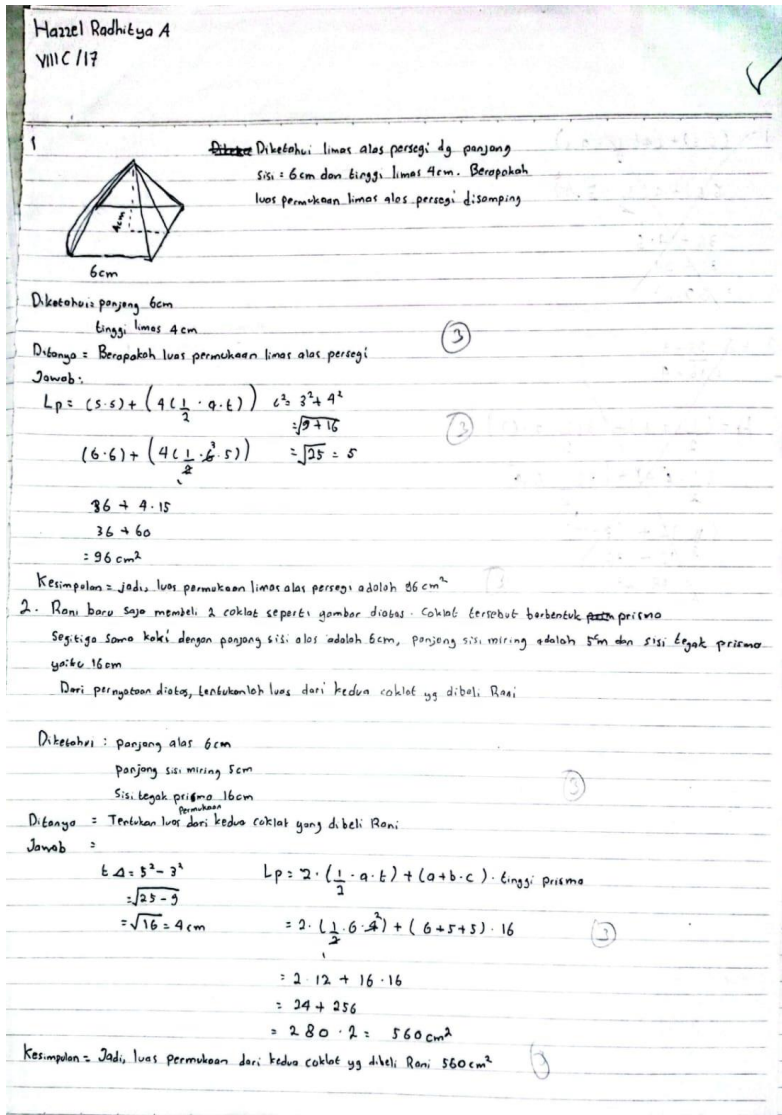 Hazzel Radhitya A
VIII C / 17
1
Diketahui limas alas persegi dg panjang
sisi = 6cm dan tinggi limas 4cm. Berapakah
luas permukaan limas alas persegi disamping
4cm
6cm
Diketahui = panjang 6cm
tinggi limas 4 cm
3
Ditanya = Berapakah luas permukaan limas alas persegi
Jawab :
Lp = (s.s) + (4(1/2 . a.t)) c² = 3² + 4²
= √9 + 16
3
(6.6) + (4(1/2 . 6 3 . 5)) = √25 = 5
36 + 4.15
36 + 60
= 96 cm²
Kesimpulan = jadi, luas permukaan limas alas persegi adalah 96 cm²
3
2. Rani baru saja membeli 2 coklat seperti gambar diatas. Coklat tersebut berbentuk prisma
Segitiga sama kaki dengan panjang sisi alas adalah 6cm, panjang sisi miring adalah 5cm dan sisi tegak prisma
yaitu 16cm
Dari pernyataan diatas, tentukanlah luas dari kedua coklat yg dibeli Rani
Diketahui : panjang alas 6cm
panjang sisi miring 5cm
3
Sisi tegak prisma 16cm
Permukaan
Ditanya = Tentukan luas dari kedua coklat yang dibeli Rani
Jawab =
t △ = 5² - 3² Lp = 2 . (1/2 . a.t) + (a+b.c) . tinggi prisma
= √25 - 9
= √16 = 4 cm = 2 . (1/2 . 6 . 4 2) + (6+5+5) . 16
3
1
= 2 . 12 + 16 . 16
= 24 + 256
= 280 . 2 = 560 cm²
Kesimpulan = Jadi, luas permukaan dari kedua coklat yg dibeli Rani 560 cm²
3